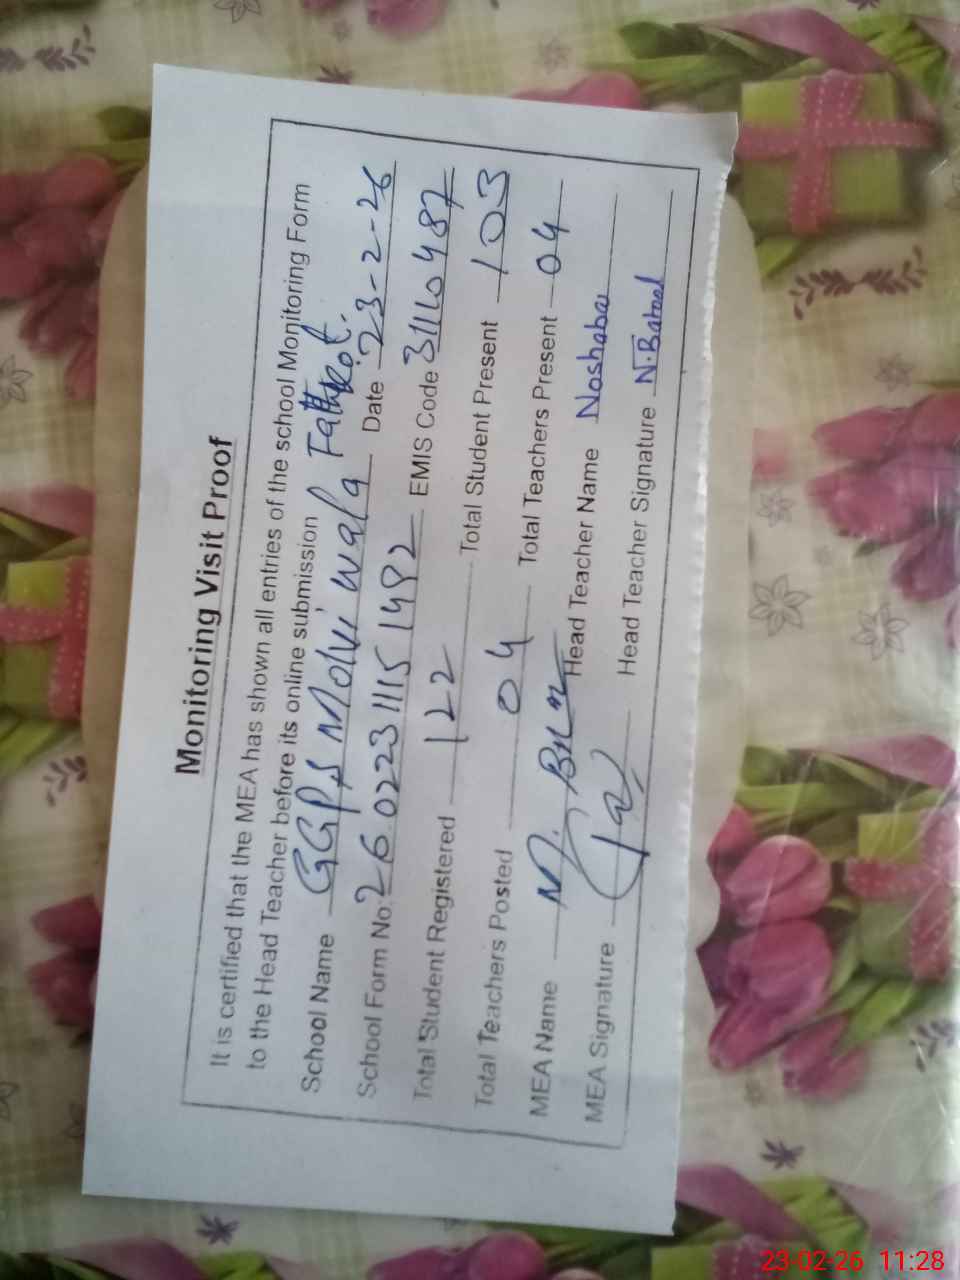 Monitoring Visit Proof
It is certified that the MEA has shown all entries of the school Monitoring Form
to the Head Teacher before its online submission
School Name GGPS Molvi wala Fatehkot.
School Form No: 26022311151492 Date 23-2-26
Total Student Registered 122 EMIS Code 31110487
Total Teachers Posted 04 Total Student Present 103
MEA Name M. Total Teachers Present 04
MEA Signature Head Teacher Name Noshaba
Head Teacher Signature N.Batool
23-02-26 11:28